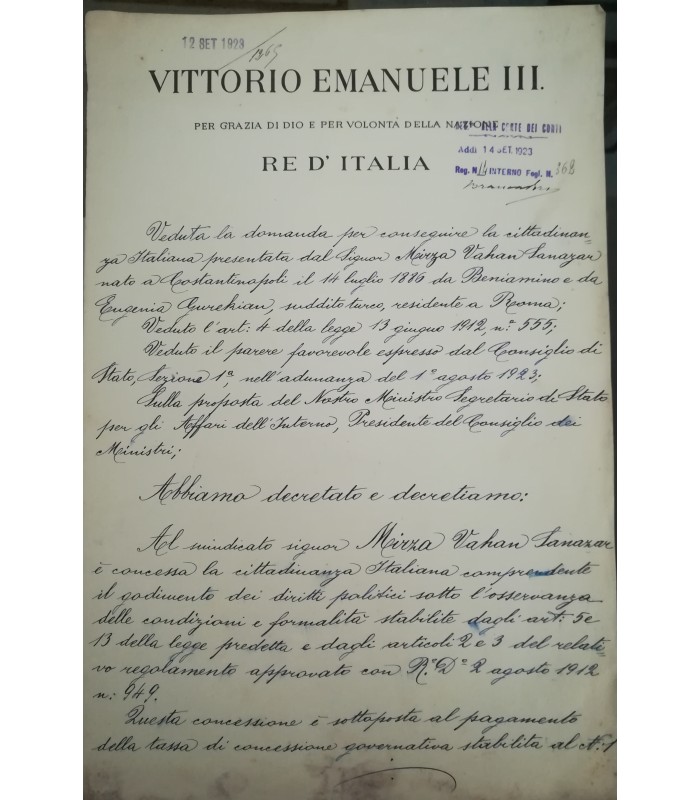 12 SET 1923
1365
VITTORIO EMANUELE III.
PER GRAZIA DI DIO E PER VOLONTÀ DELLA NAZIONE
RE D' ITALIA
DELLA CORTE DEI CONTI
Addì 14 SET. 1923
Reg. N. 14 INTERNO Fogl. N. 368
Veduta la domanda per conseguire la cittadinan-
za Italiana presentata dal Signor Mirza Vahan Sanazar
nato a Costantinopoli il 14 luglio 1886 da Beniamino e da
Eugenia Gurekian, suddito turco, residente a Roma;
Veduto l'art: 4 della legge 13 giugno 1912, n. 555;
Veduto il parere favorevole espresso dal Consiglio di
Stato, Sezione 1ª, nell'adunanza del 1º agosto 1923;
Sulla proposta del Nostro Ministro Segretario di Stato
per gli Affari dell'Interno, Presidente del Consiglio dei
Ministri;
Abbiamo decretato e decretiamo:
Al mindicato signor Mirza Vahan Sanazar
è concessa la cittadinanza Italiana comprendente
il godimento dei diritti politici sotto l'osservanza
delle condizioni e formalità stabilite dagli art: 5 e
13 della legge predetta e dagli articoli 2 e 3 del relati-
vo regolamento approvato con R.º D.º 2 agosto 1912
n: 949.
Questa concessione è sottoposta al pagamento
della tassa di concessione governativa stabilita al N: 1